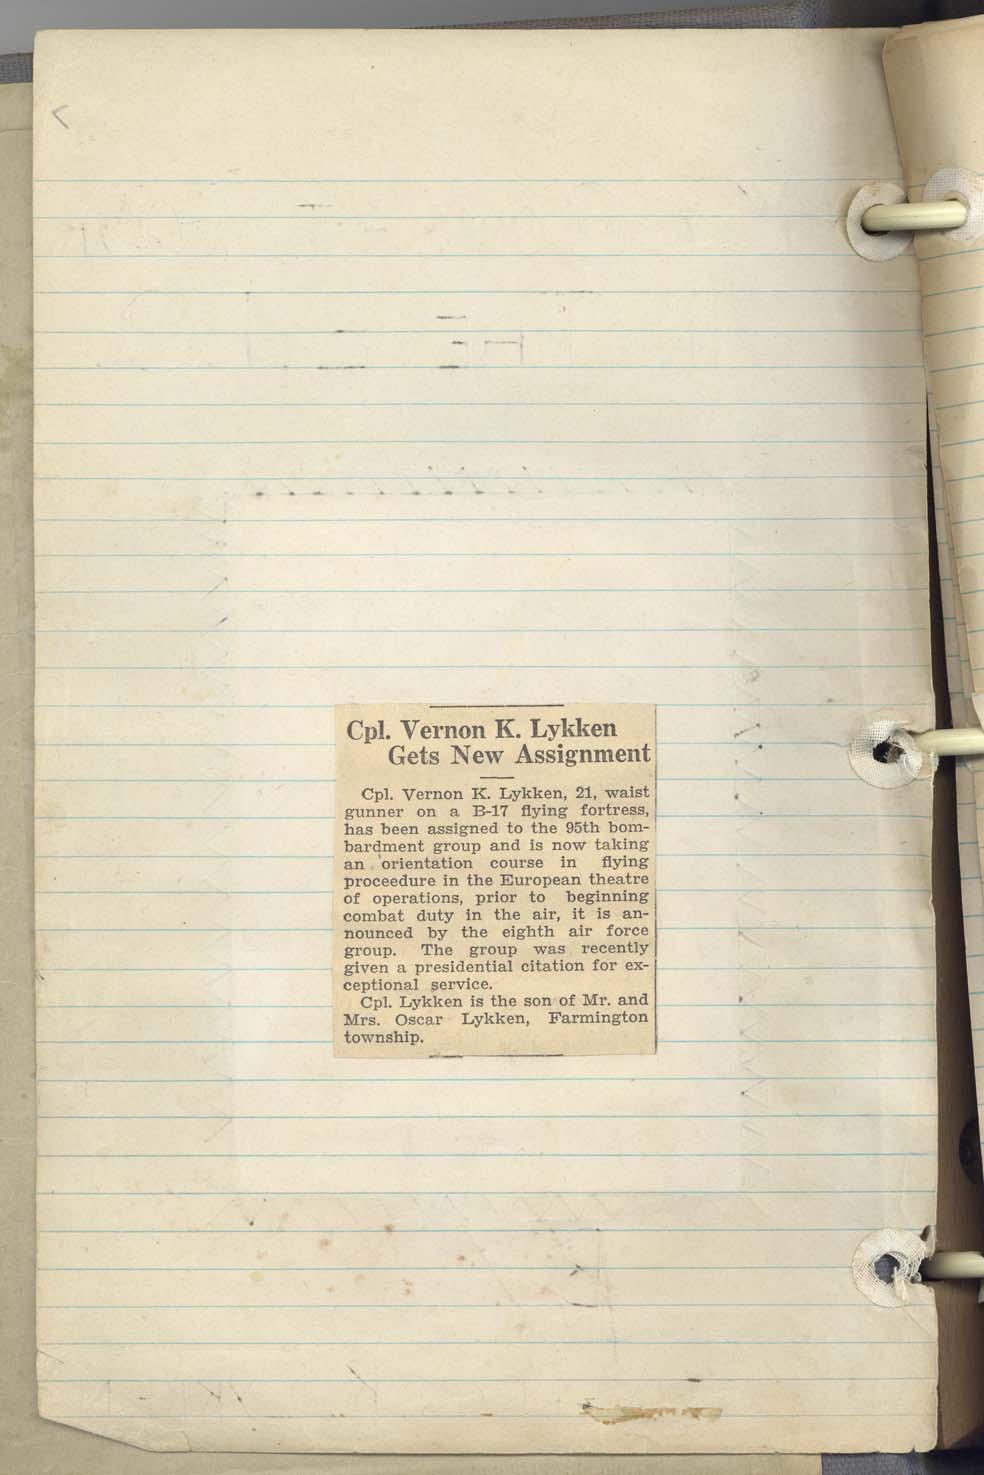 Cpl. Vernon K. Lykken
Gets New Assignment
Cpl. Vernon K. Lykken, 21, waist
gunner on a B-17 flying fortress,
has been assigned to the 95th bom-
bardment group and is now taking
an orientation course in flying
proceedure in the European theatre
of operations, prior to beginning
combat duty in the air, it is an-
nounced by the eighth air force
group. The group was recently
given a presidential citation for ex-
ceptional service.
Cpl. Lykken is the son of Mr. and
Mrs. Oscar Lykken, Farmington
township.